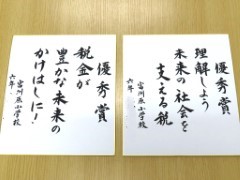 優秀賞
税金が
豊かな未来の
かけはしに！
富川原小学校
六年
優秀賞
理解しよう
未来の社会を
支える税
富川原小学校
六年